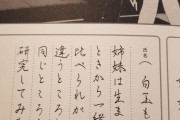 氏名（白玉も
姉妹は生ま
ときから一緒
比べられが
違うところ
同じところ
研究してみ